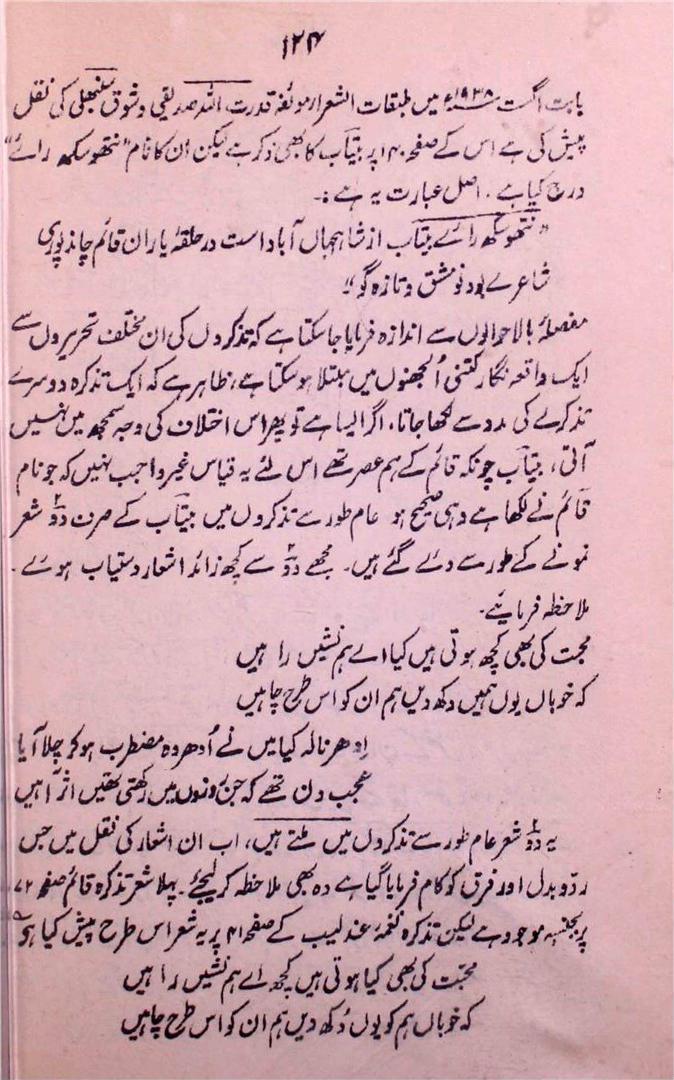 ۱۲۴
بابت اگست ۱۹۳۸ء میں طبقات الشعراء مولفہ قدرت اللہ صدیقی و شوق سنبھلی کی نقل
پیش کی ہے اس کے صفحہ ۱۴۰ پر بیتاب کا بھی ذکر ہے لیکن ان کا نام "نتھو سکھ رائے"
درج کیا ہے ۔ اصل عبارت یہ ہے :۔
"نتھو سکھ رائے بیتاب از شاہجہاں آباد است در حلقۂ یاران قائم چاندپوری
شاعرے بود نو مشق و تازہ گو"
مفصلۂ بالا حوالوں سے اندازہ فرمایا جاسکتا ہے کہ تذکروں کی ان مختلف تحریروں سے
ایک واقعہ نگار کتنی اُلجھنوں میں مبتلا ہوسکتا ہے، ظاہر ہے کہ ایک تذکرہ دوسرے
تذکرے کی مدد سے لکھا جاتا، اگر ایسا ہے تو پھر اس اختلاف کی وجہ سمجھ میں نہیں
آتی، بیتاب چونکہ قائم کے ہم عصر تھے اس لئے یہ قیاس غیر واجب نہیں کہ جو نام
قائم نے لکھا ہے وہی صحیح ہو عام طور سے تذکروں میں بیتاب کے صرف دو۲ شعر
نمونے کے طور سے دئے گئے ہیں۔ مجھے دو۲ سے کچھ زائد اشعار دستیاب ہوئے ۔
ملاحظہ فرمایئے۔
محبت کی بھی کچھ ہوتی ہیں کیا اے ہم نشیں راہیں
کہ خوباں یوں ہمیں دکھ دیں ہم ان کو اس طرح چاہیں
اِدھر نالہ کیا میں نے اُدھر وہ مضطرب ہوکر چلا آیا
عجب دن تھے کہ جن رونوں میں رکھتی تھیں اثر آہیں
یہ دو۲ شعر عام طور سے تذکروں میں ملتے ہیں، اب ان اشعار کی نقل میں جس
ردّو بدل اور فرق کو کام فرمایا گیا ہے وہ بھی ملاحظہ کرلیجئے۔ پہلا شعر تذکرہ قائم صفحہ ۷۲
پر بجنسہ موجود ہے لیکن تذکرہ نغمۂ عندلیب کے صفحہ ۴۱ پر یہ شعر اس طرح پیش کیا ہو
محبّت کی بھی کیا ہوتی ہیں کچھ اے ہم نشیں راہیں
کہ خوباں ہم کو یوں دُکھ دیں ہم ان کو اس طرح چاہیں